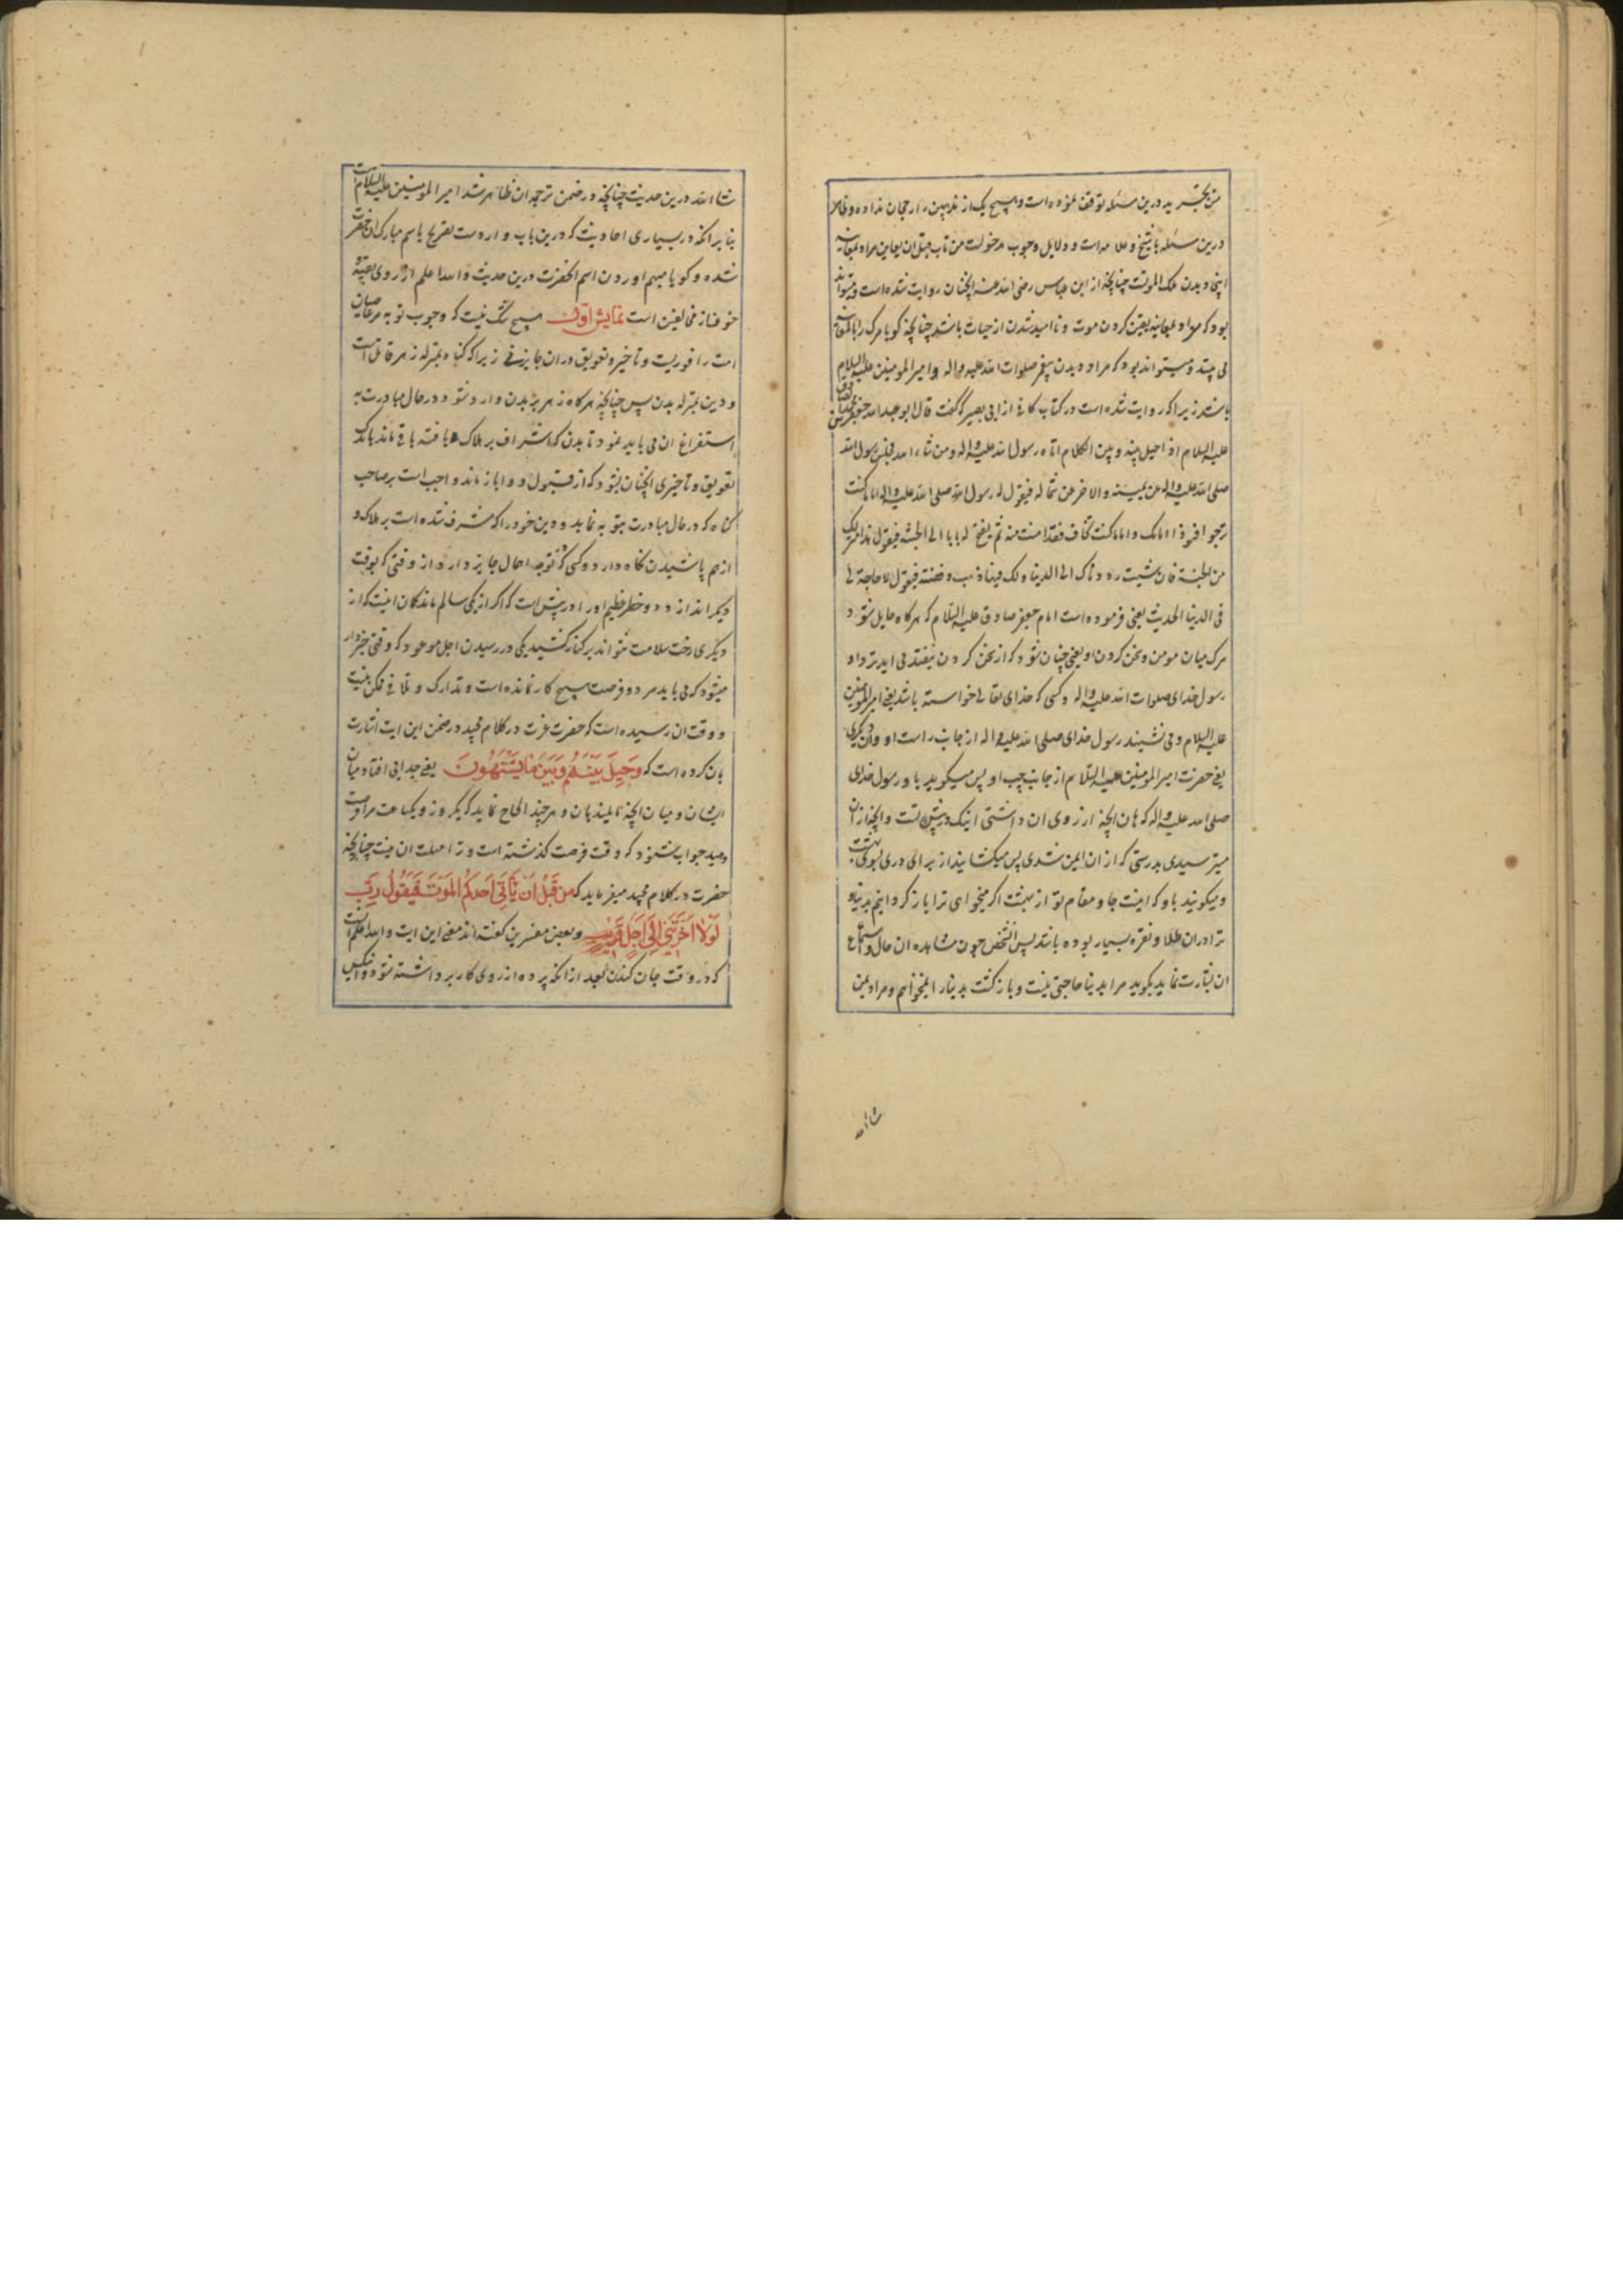 درین مسئله توقف نموده است و هیچ یک از مذهبین را رجحان نداده و ظاهر
درین مسئله با شیخ و علامه است و دلایل وجوب مدخولست من تاب قبل ان یعاین مراد بمعاینه
اینجا دیدن ملک الموتست چنانچه از ابن عباس رضی الله عنه انچنان روایت شده است و میتواند
بود که مراد بمعاینه یقین کردن موت و ناامید شدن از حیات باشد چنانچه گویا مرک را بالمعاینه
می بیند و میتواند بود که مراد دیدن پیغمبر صلوات الله علیه و اله و امیر المومنین علیه السلام
باشد زیرا که روایت شده است در کتاب کافی از ابی بصیر که گفت قال ابو عبد الله جعفر بن محمد الصادق
علیه السلام اذا حیل بینه و بین الکلام اتاه رسول الله علیه و اله و من شاء الله فجلس رسول الله
صلی الله علیه و اله عن یمینه و الاخر عن شماله فیقول له رسول الله صلی الله علیه و اله اما ما کنت
ترجوا فهوذا امامک و اما ما کنت تخاف فقد امنت منه ثم یفتح له بابا الی الجنة فیقول هذا منزلک
من الجنة فان شئت رددناک الی الدنیا و لک فیها ذهب و فضة فیقول لا حاجة لی
فی الدنیا الحدیث یعنی فرموده است امام جعفر صادق علیه السلام که هرکاه حایل شود
مرک میان مومن و سخن کردن او یعنی چنان شود که از سخن کردن بیفتد می اید نزد او
رسول خدای صلوات الله علیه و اله و کسی که خدای تعالی خواسته باشد یعنی امیر المومنین
علیه السلام و می نشیند رسول خدای صلی الله علیه و اله از جانب راست او و ان دیگری
یعنی حضرت امیر المومنین علیه السلام از جانب چپ او پس میکوید با و رسول خدای
صلی الله علیه و اله که هان انچه ارزوی ان داشتی اینک در پیش تست و انچه از ان
میترسیدی بدرستی که از ان ایمن شدی پس میکشایند از برای او دری بسوی بهشت
و میکویند باو که اینست جا و مقام تو از بهشت اگر میخواهی ترا باز گردانیم بدنیا و
ترا در ان طلا و نقره بسیار بوده باشد پس انشخص چون مشاهده ان حال و استماع
ان بشارت نماید بکوید مرا بدنیا حاجتی نیست و بازگشت بدنیا را نمیخواهم و مراد بمن
شا الله
شا الله درین حدیث چنانچه در ضمن ترجمه ان ظاهر شد امیر المومنین علیه السلام است
بنا بر انکه در بسیاری احادیث که درین باب وارد است تصریح باسم مبارک انحضرت
شده و کویا مبهم اوردن اسم انحضرت درین حدیث و الله اعلم از روی تقیه و
خوفنا از مخالفین است نمایش اول هیچ شک نیست که وجوب توبه مر عاصیان
امت را فوریست و تاخیر و تعویق در ان جایز نی زیرا که گناه بمنزله زهر قاتل است
و دین بمنزله بدن پس چنانچه هرکاه زهر بر بدن وارد شود در حال مبادرت به
استفراغ ان می باید نمود تا بدن که اشراف بر هلاک یافته باقی ماند باندک
تعویق و تاخیری انچنان بشود که از قبول دوا باز ماند واجب است بر صاحب
گناه که در حال مبادرت بتوبه نماید و دین خود را که مشرف شده است بر هلاک و
از هم پاشیدن نگاه دارد و کسی که توبه اهمال جایز دارد و از وقتی که بوقت
دیگر اندازد دو خطر عظیم او را در پیش است که اگر از یکی سالم ماند کان اینست که از
دیگری رخت سلامت نتواند بر کنار کشید یکی در رسیدن اجل موعود که وقتی خبردار
میشود که می باید مرد و فرصت هیچ کار نمانده است و تدارک و تلافی ممکن نیست
و وقت ان رسیده است که حضرت عزت در کلام مجید در ضمن این ایت اشارت
بان کرده است که وَحِيلَ بَيْنَهُمْ وَبَيْنَ مَا يَشْتَهُونَ یعنی جدایی افتاد میان
ایشان و میان انچه مایلند بان و هر چند الحاح نماید که یکروز و یکساعت مرا فرصت
دهید جواب شنود که وقت فرصت گذشته است و ترا مهلت ان نیست چنانچه
حضرت در کلام مجید میفرماید که مِنْ قَبْلِ أَنْ يَأْتِيَ أَحَدَكُمُ الْمَوْتُ فَيَقُولَ رَبِّ
لَوْلَا أَخَّرْتَنِي إِلَى أَجَلٍ قَرِيبٍ و بعض مفسرین گفته اند معنی این ایت و الله اعلم انست
که در وقت جان کندن بعد از انکه پرده از روی کار برداشته شود و انکس